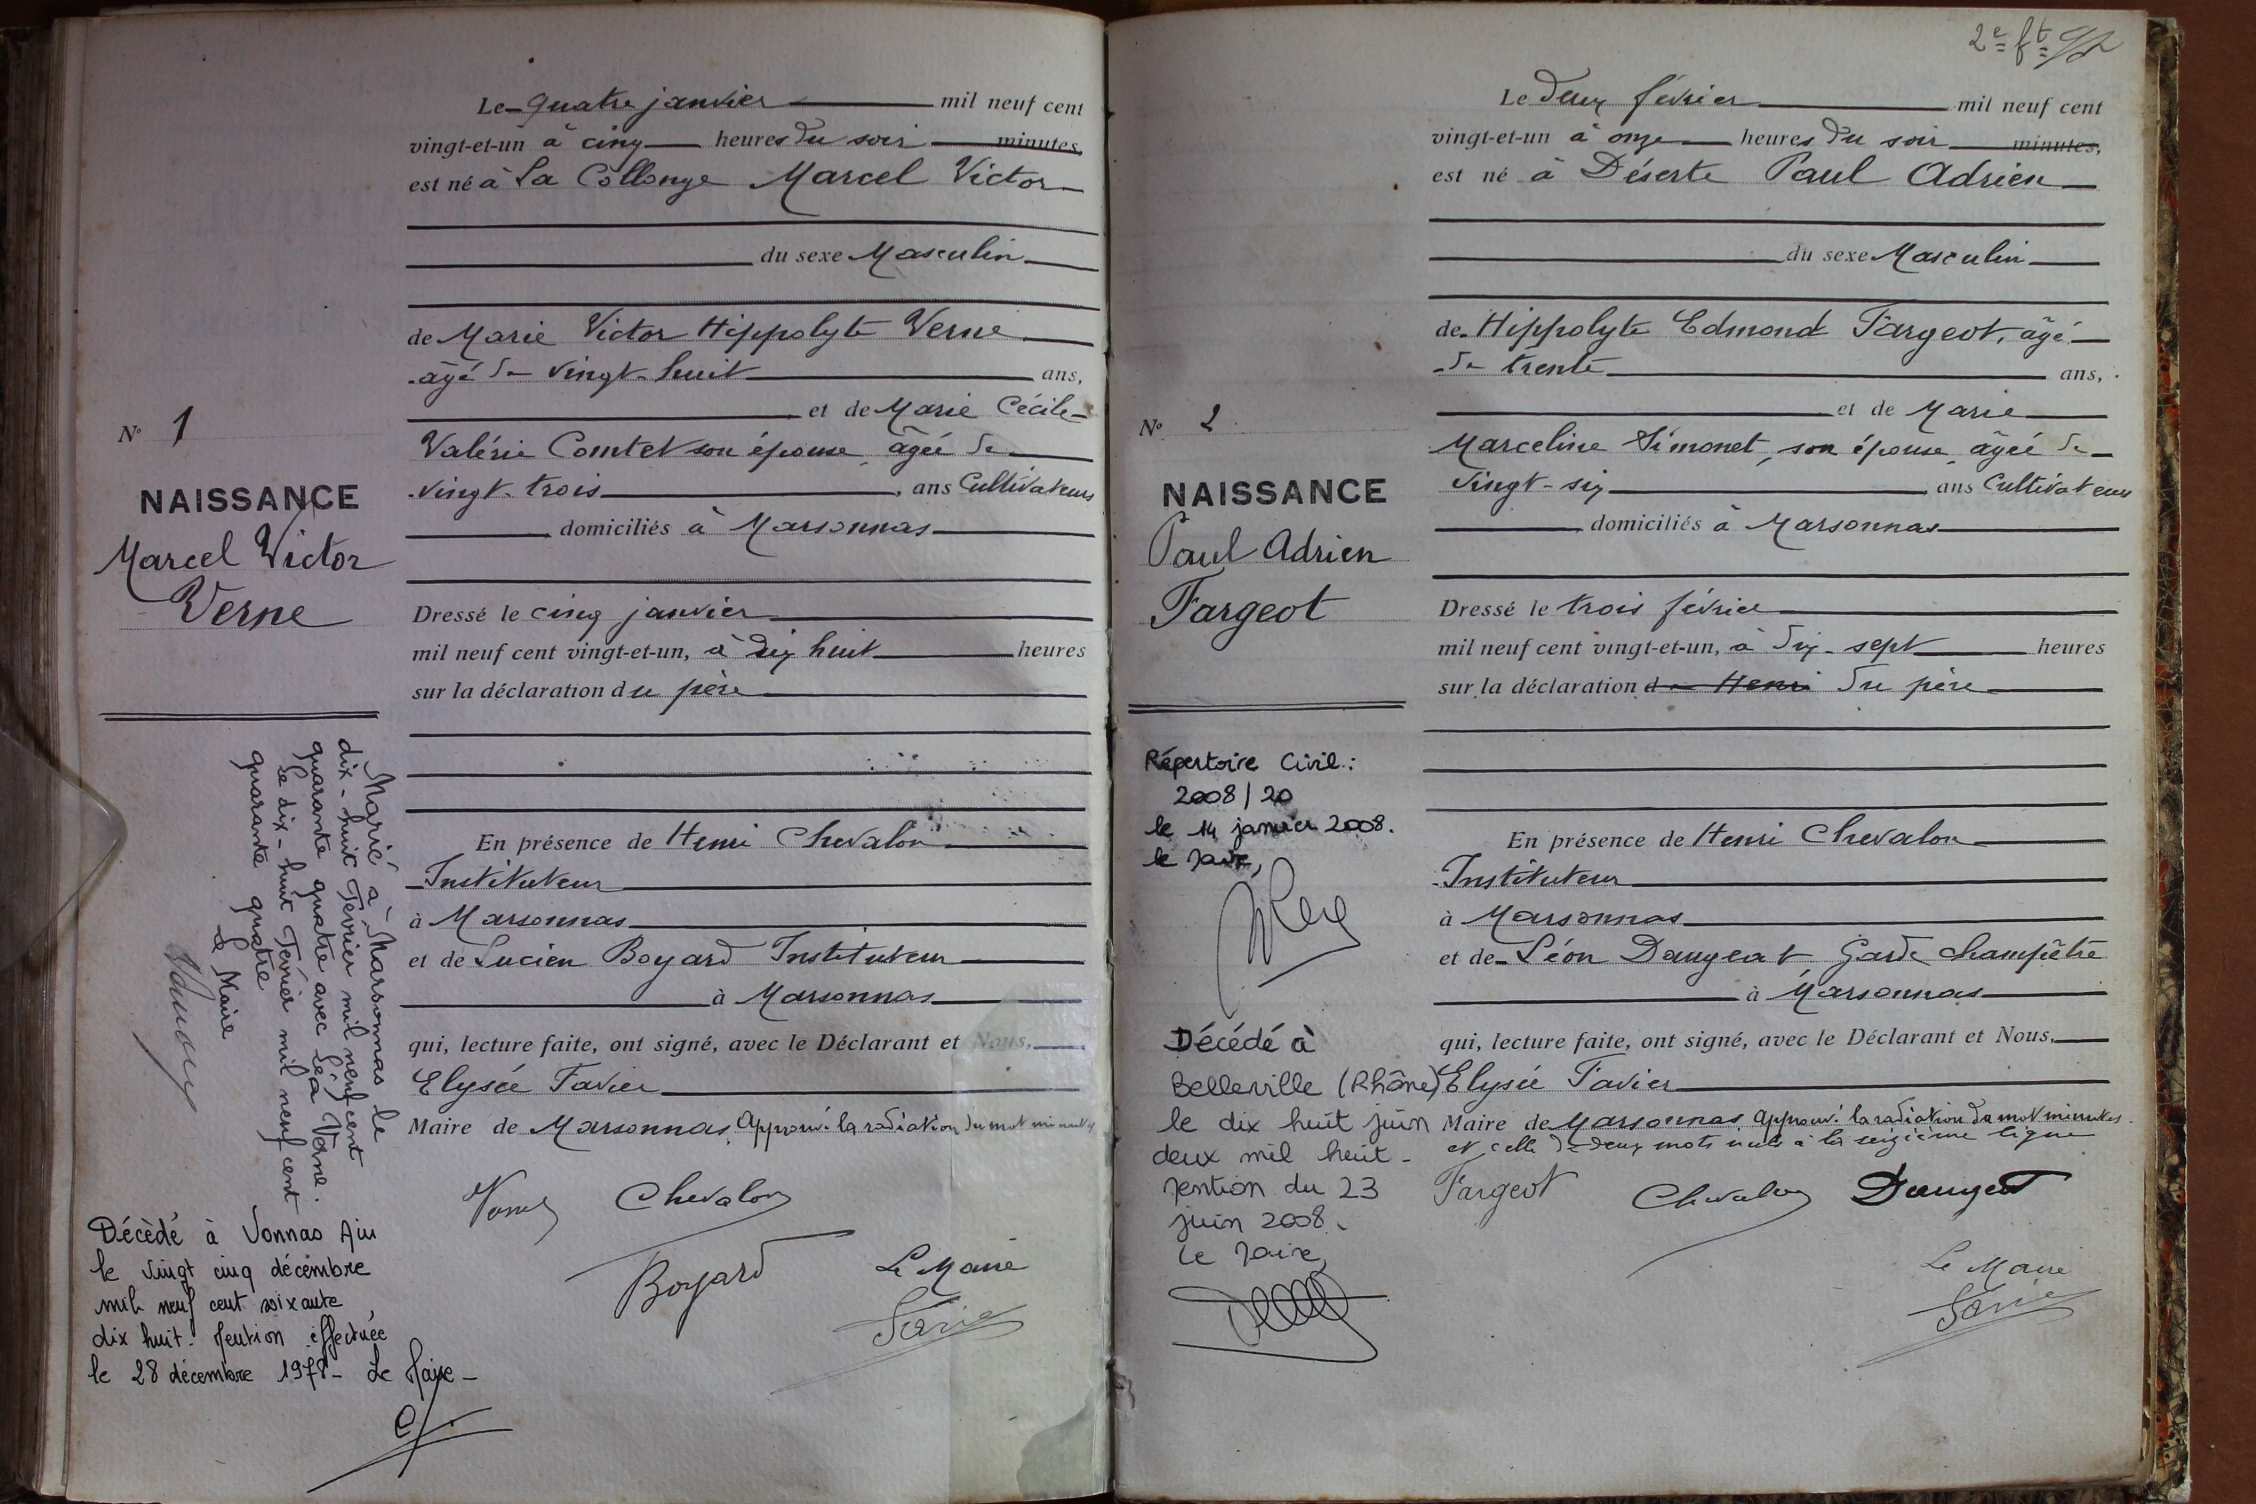 Le quatre janvier mil neuf cent
vingt-et-un à cinq heures du soir minutes,
est né à La Collonge Marcel Victor
du sexe Masculin
de Marie Victor Hippolyte Verne
âgé de vingt-huit ans,
et de Marie Cécile
N° 1
Valérie Comtet son épouse, âgée de
vingt-trois, ans Cultivateurs
NAISSANCE
domiciliés à Marsonnas
Marcel Victor
Verne
Dressé le cinq janvier
mil neuf cent vingt-et-un, à dix huit heures
sur la déclaration du père
En présence de Henri Chevalon
Instituteur
à Marsonnas
et de Lucien Boyard Instituteur
à Marsonnas
qui, lecture faite, ont signé, avec le Déclarant et Nous,
Elysée Favier
Maire de Marsonnas. Approuvé la radiation du mot minutes
Verne Chevalon
Boyard Le Maire
Favier
Marié à Marsonnas le
dix-huit Fevrier mil neuf cent
quarante quatre avec Léa Verne.
Le dix-huit Fevrier mil neuf cent
quarante quatre
Le Maire
Décèdé à Vonnas Ain
le vingt cinq décembre
mil neuf cent soixante
dix huit. Mention effectuée
le 28 décembre 1978 - Le Maire -
2e ft
Le deux février mil neuf cent
vingt-et-un à onze heures du soir minutes,
est né à Déserte Paul Adrien
du sexe Masculin
de Hippolyte Edmond Fargeot, âgé
de trente ans,
et de Marie
N° 2
Marceline Simonet, son épouse, âgée de
vingt-six ans Cultivateurs
NAISSANCE
domiciliés à Marsonnas
Paul Adrien
Fargeot
Dressé le trois février
mil neuf cent vingt-et-un, à dix-sept heures
sur la déclaration de Henri du père
En présence de Henri Chevalon
Instituteur
à Marsonnas
et de Léon Daugeat, Garde champêtre
à Marsonnas
qui, lecture faite, ont signé, avec le Déclarant et Nous,
Elysée Favier
Maire de Marsonnas. Approuvé la radiation du mot minutes
et celle de deux mots nuls à la seizième ligne
Fargeot Chevalon Daugeat
Le Maire
Favier
Répertoire Civil :
2008 / 20
le 14 janvier 2008.
le Maire,
Décédé à
Belleville (Rhône)
le dix huit juin
deux mil huit -
Mention du 23
juin 2008.
Le Maire,